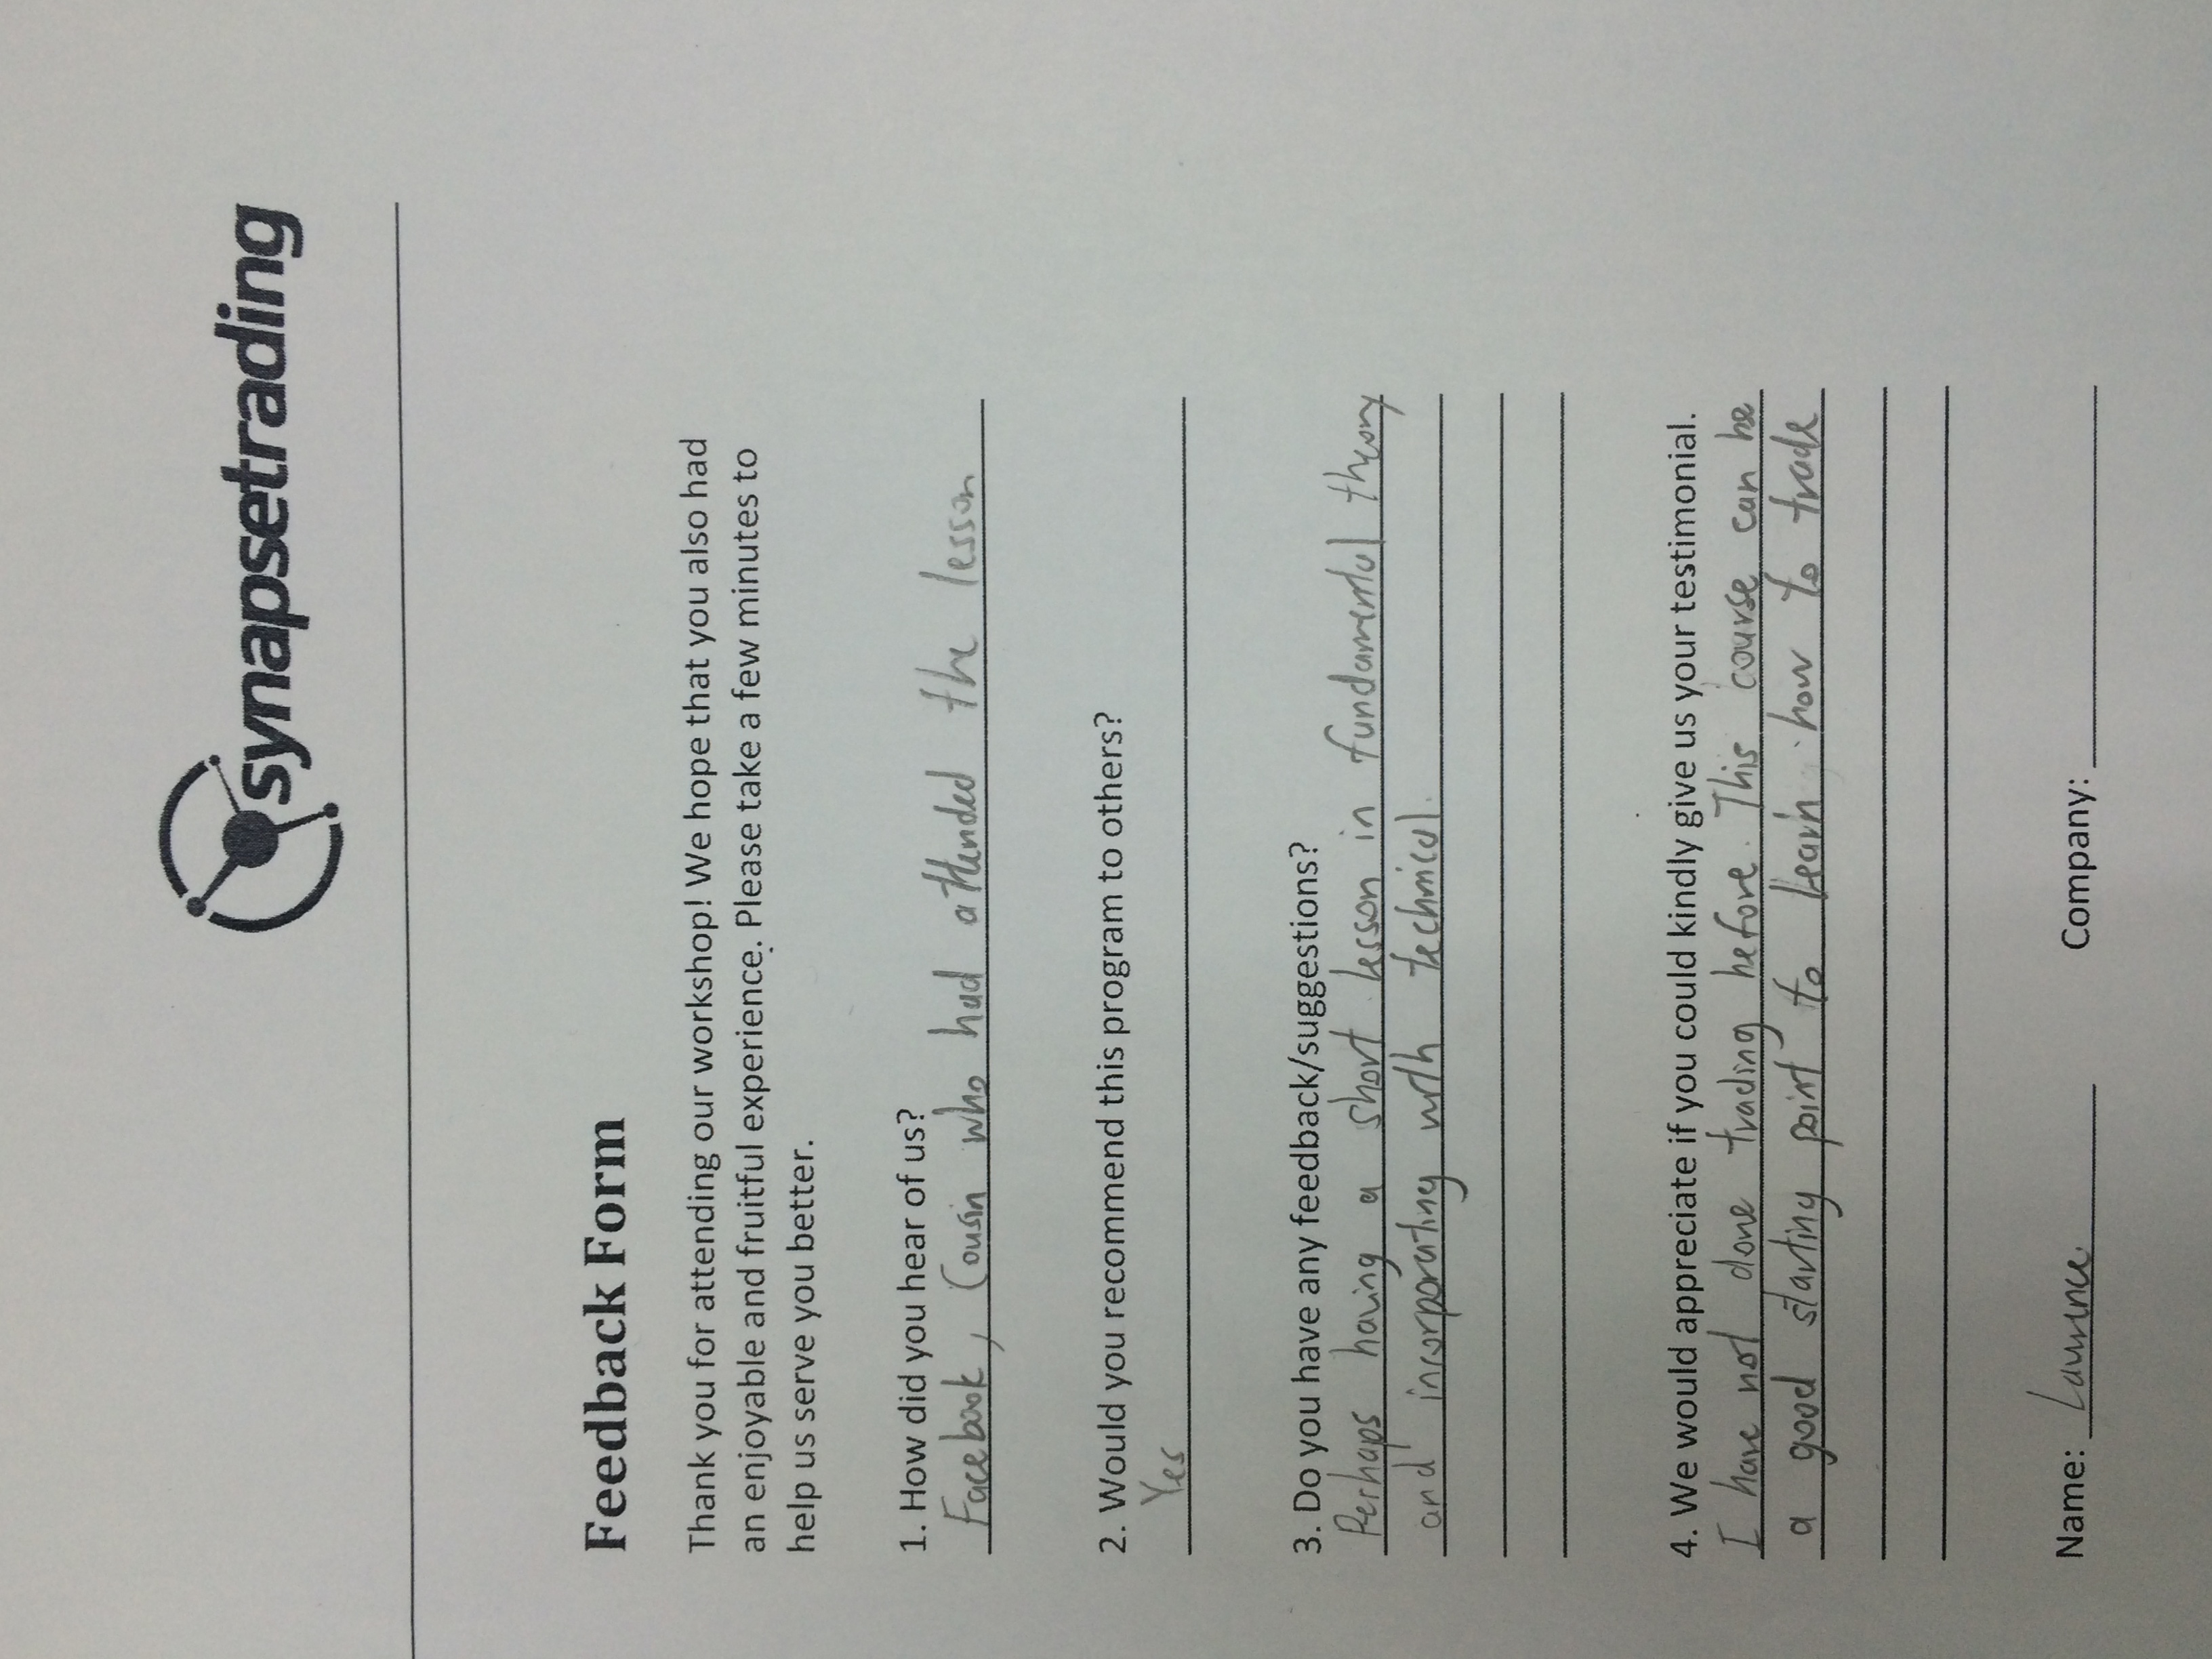 synapsetrading
Feedback Form
Thank you for attending our workshop! We hope that you also had
an enjoyable and fruitful experience. Please take a few minutes to
help us serve you better.
1. How did you hear of us?
Facebook, Cousin who had attended the lesson
2. Would you recommend this program to others?
Yes
3. Do you have any feedback/suggestions?
Perhaps having a short lesson in fundamental theory
and incorporating with technical.
4. We would appreciate if you could kindly give us your testimonial.
I have not done trading before. This course can be
a good starting point to learn how to trade
Name: Laurence Company: